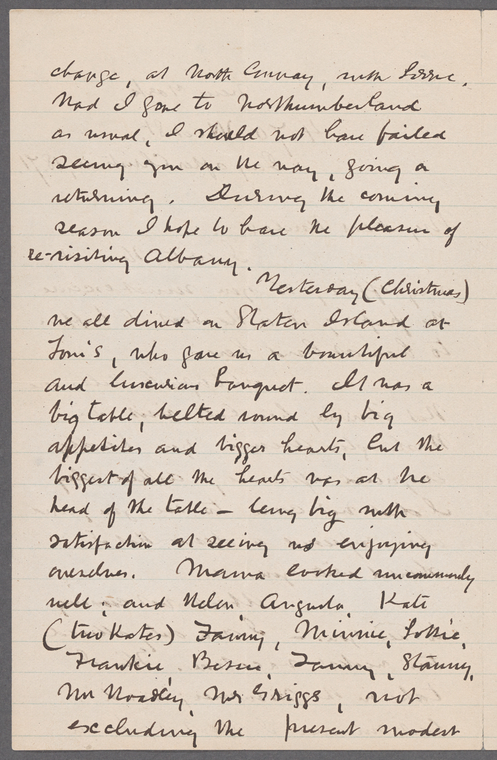 change, at North Conway, with Lizzie.
Had I gone to Northumberland
as usual, I should not have failed
seeing you on the way, going or
returning. During the coming
season I hope to have the pleasure of
re-visiting Albany.
Yesterday (Christmas)
we all dined on Staten Island at
Tom's, who gave us a bountiful
and luxurious banquet. It was a
big table, belted round by big
appetites and bigger hearts, but the
biggest of all the hearts was at the
head of the table — being big with
satisfaction at seeing us enjoying
ourselves. Mama looked uncommonly
well; and Helen, Augusta, Kate
(two Kates) Fanny, Minnie, Lottie,
Frankie, Bessie, Fanny, Stanny,
Mr Hoadley, Mr Griggs, not
excluding the present modest